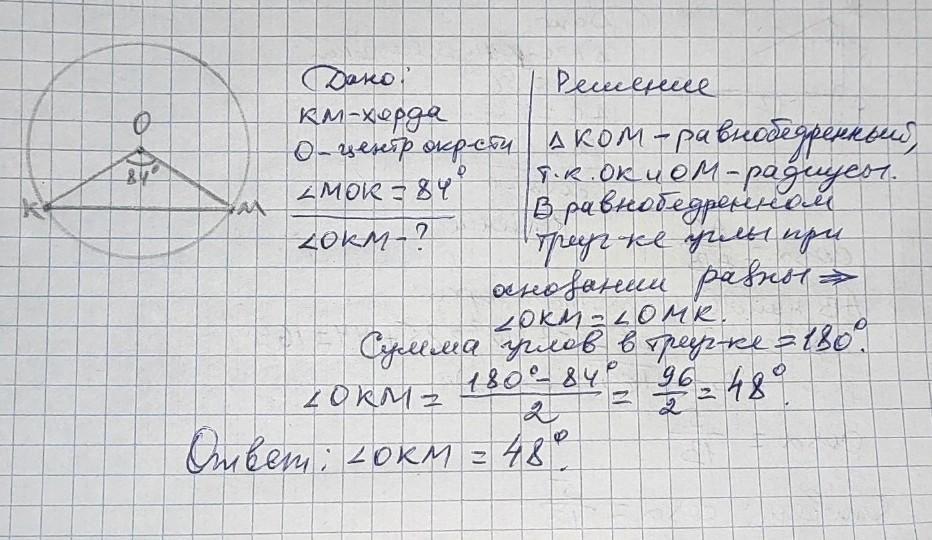 O
84°
K
M
Дано:
КМ-хорда
О-центр окр-сти
∠МОК = 84°
∠ОКМ - ?
Решение
Δ КОМ - равнобедренный,
т.к. ОК и ОМ - радиусы.
В равнобедренном
треуг-ке углы при
основании равны ⇒
∠ОКМ = ∠ОМК.
Сумма углов в треуг-ке = 180°.
∠ОКМ = (180° - 84°)/2 = 96/2 = 48°.
Ответ: ∠ОКМ = 48°.